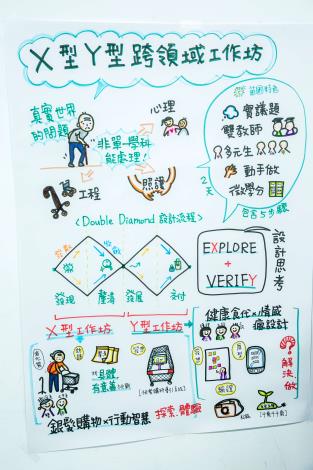 X型Y型跨領域工作坊
真實世界
的問題
心理
非單一學科
能處理!
工程
照護
苗圃特色
實議題
雙教師
多元生
動手做
微學分
2
天
包含5步驟
<Double Diamond 設計流程>
發散
收斂
發現
釐清
發展
交付
EXPLORE
+
VERIFY
設計思考
X型工作坊
Y型工作坊
健康食代×情感
療設計
找具體
有意義
銀髮購物×行動智慧
探索.體驗
?
解決.做